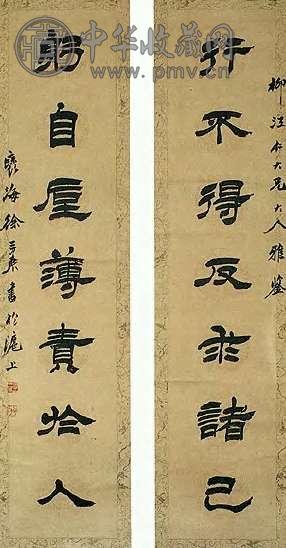 中华收藏网
www.pmv.cn
柳汀仁大兄大人雅鑒
行不得反求諸己
躬自厚薄責於人
褎海徐三庚書於滬上